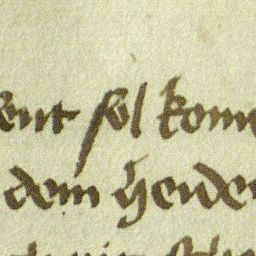 ent sol kome
dem heiden